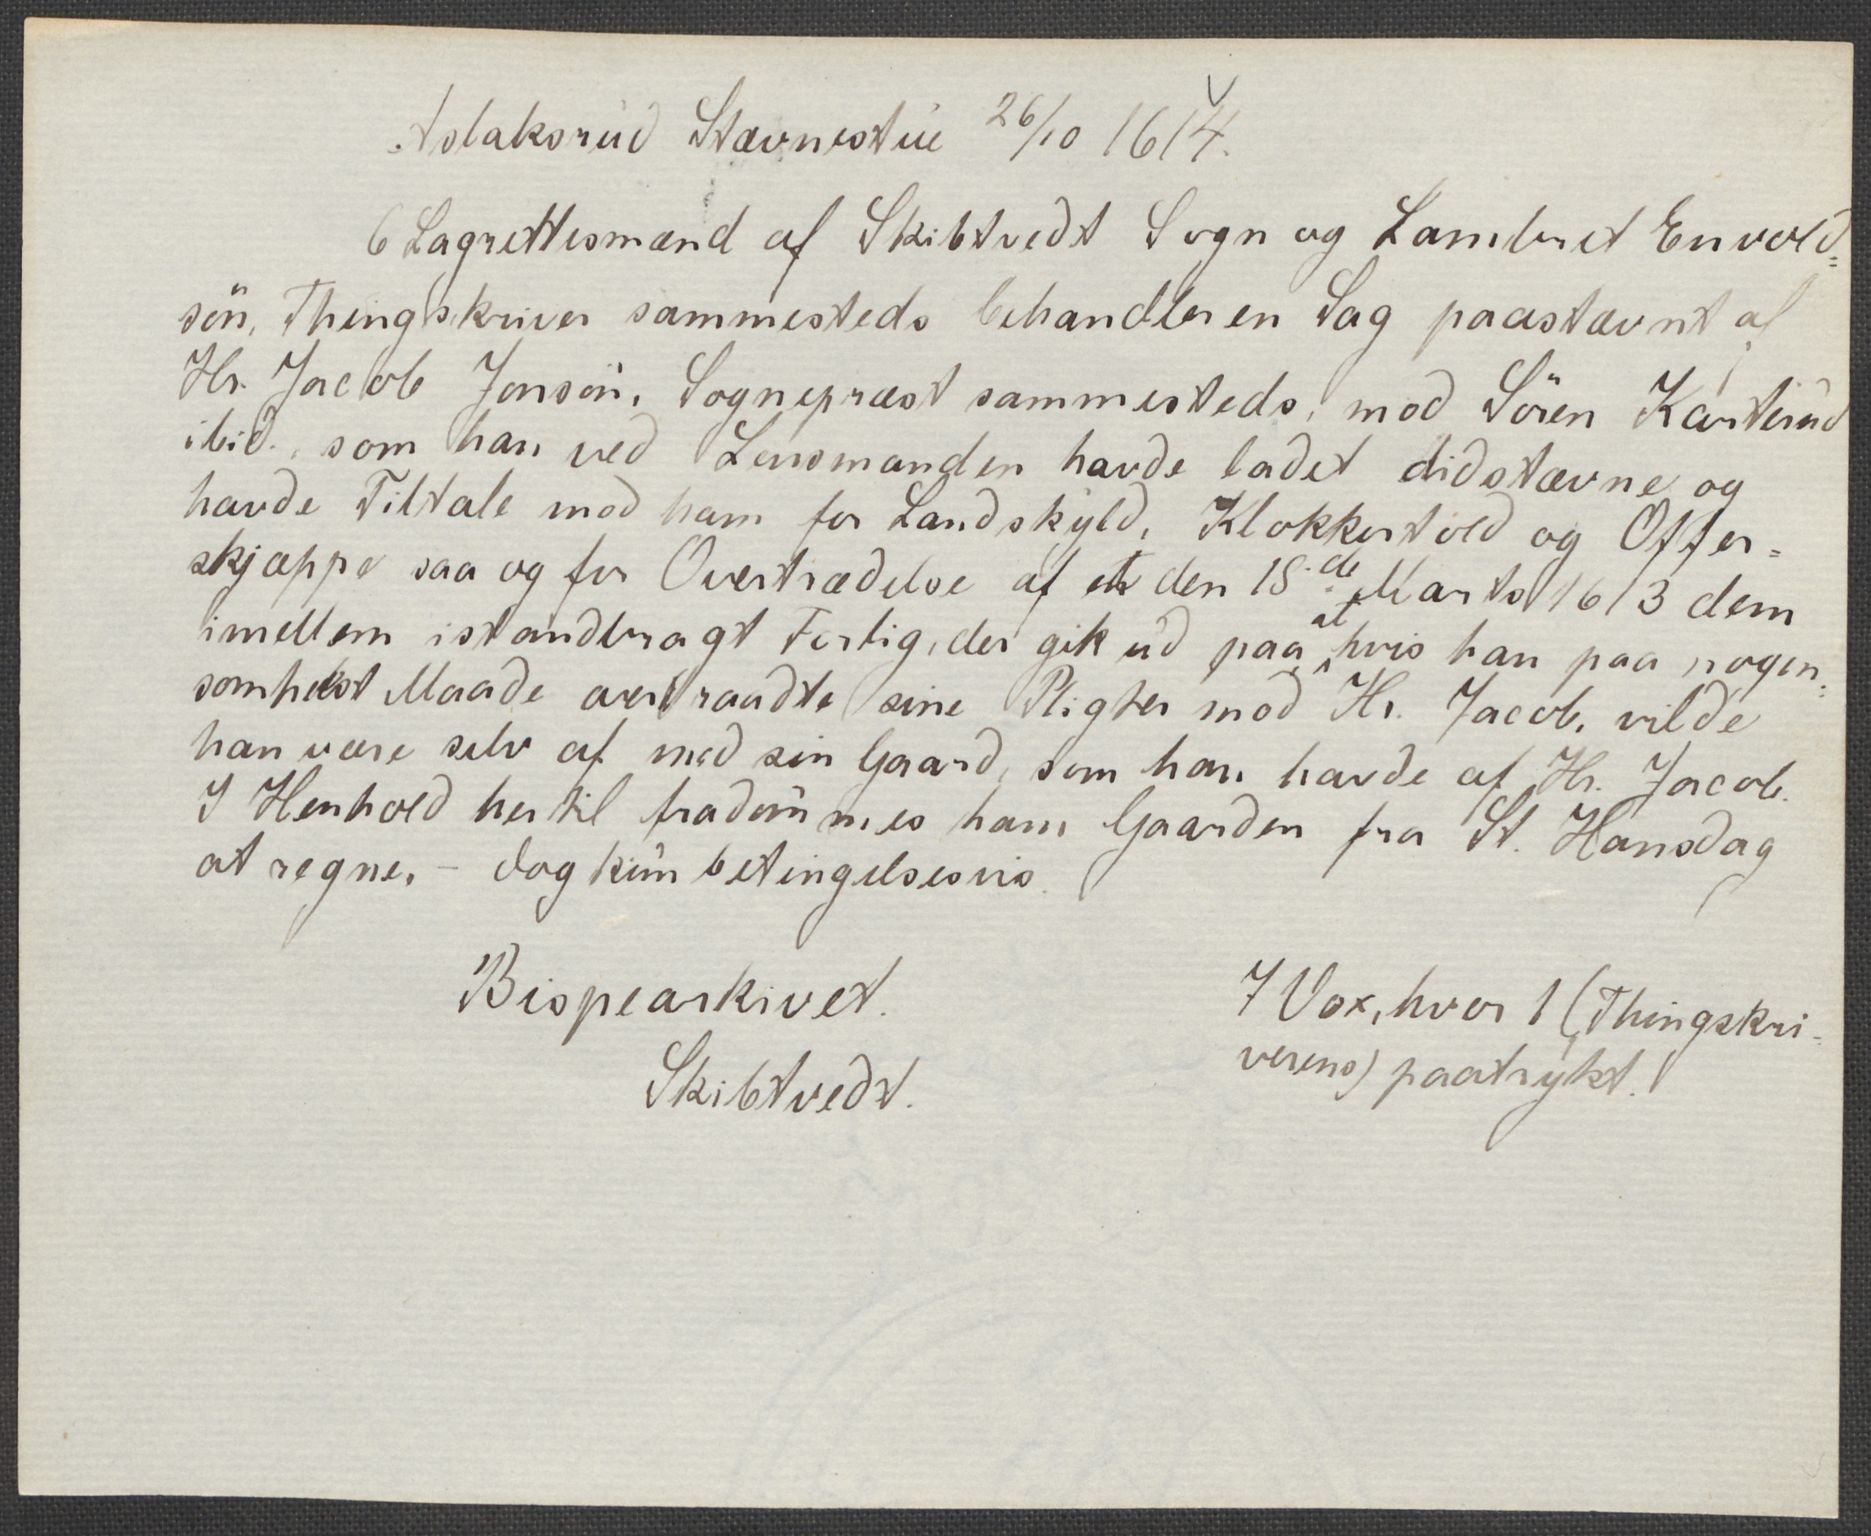 Aslaksrud Stævnestue 26/10 1614.
6 Lagrettesmænd af Skibtvedt Sogn og Lambret Envold=
sön, Thingskriver sammesteds behandler en Sag paastævnt af
Hr. Jacob Jonsön, Sognepræst sammesteds, mod Sören Karterud
ibid., som han ved Lensmanden havde ladet didstævne og
havde Tiltale mod ham for Landskyld, Klokkertold og Offer=
skjæppe saa og for Overtrædelse af et den 18.de Marts 1613 dem
imellem istandbragt Forlig, der gik ud paa at hvis han paa nogen=
somhelst Maade overtraadte sine Pligter mod Hr. Jacob, vilde
han være selv af med sin Gaard, som han havde af Hr. Jacob.
I Henhold hertil fradömmes ham Gaarden fra St. Hansdag
at regne, - dog kun betingelsesvis.
Bispearkivet.
Skibtvedt.
7 Vox, hvor 1 (Thingskri-
verens) paatrykt.